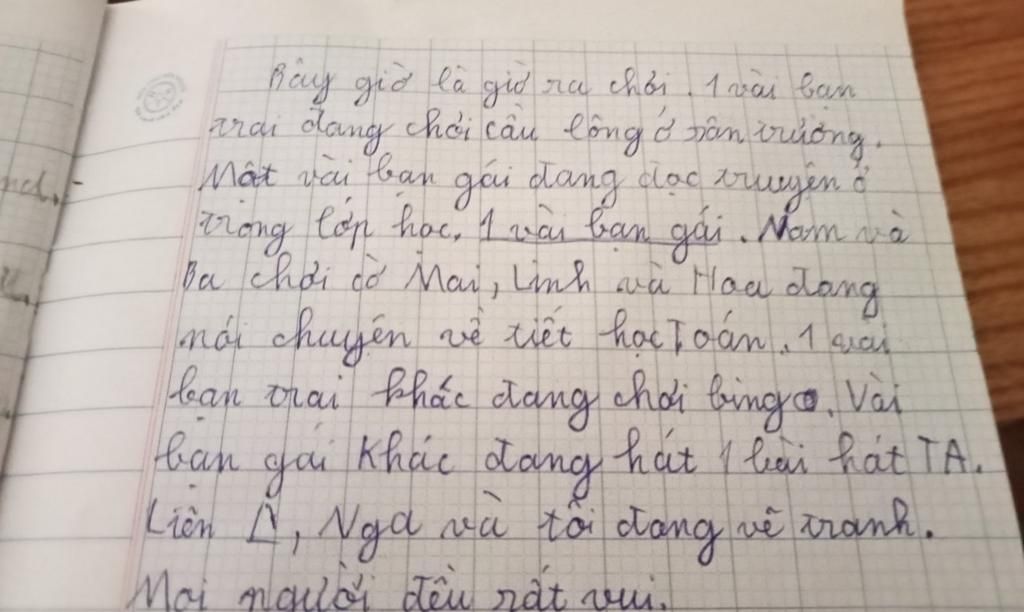 Bây giờ là giờ ra chơi. 1 vài bạn
trai đang chơi cầu lông ở sân trường.
Một vài bạn gái đang đọc truyện ở
trong lớp học. 1 vài bạn gái. Nam và
Ba chơi cờ Mai, Linh và Hoa đang
nói chuyện về tiết học Toán. 1 vài
bạn trai khác đang chơi bingo. Vài
bạn gái khác đang hát 1 bài hát TA.
Liên, Nga và tôi đang vẽ tranh.
Mọi người đều rất vui.